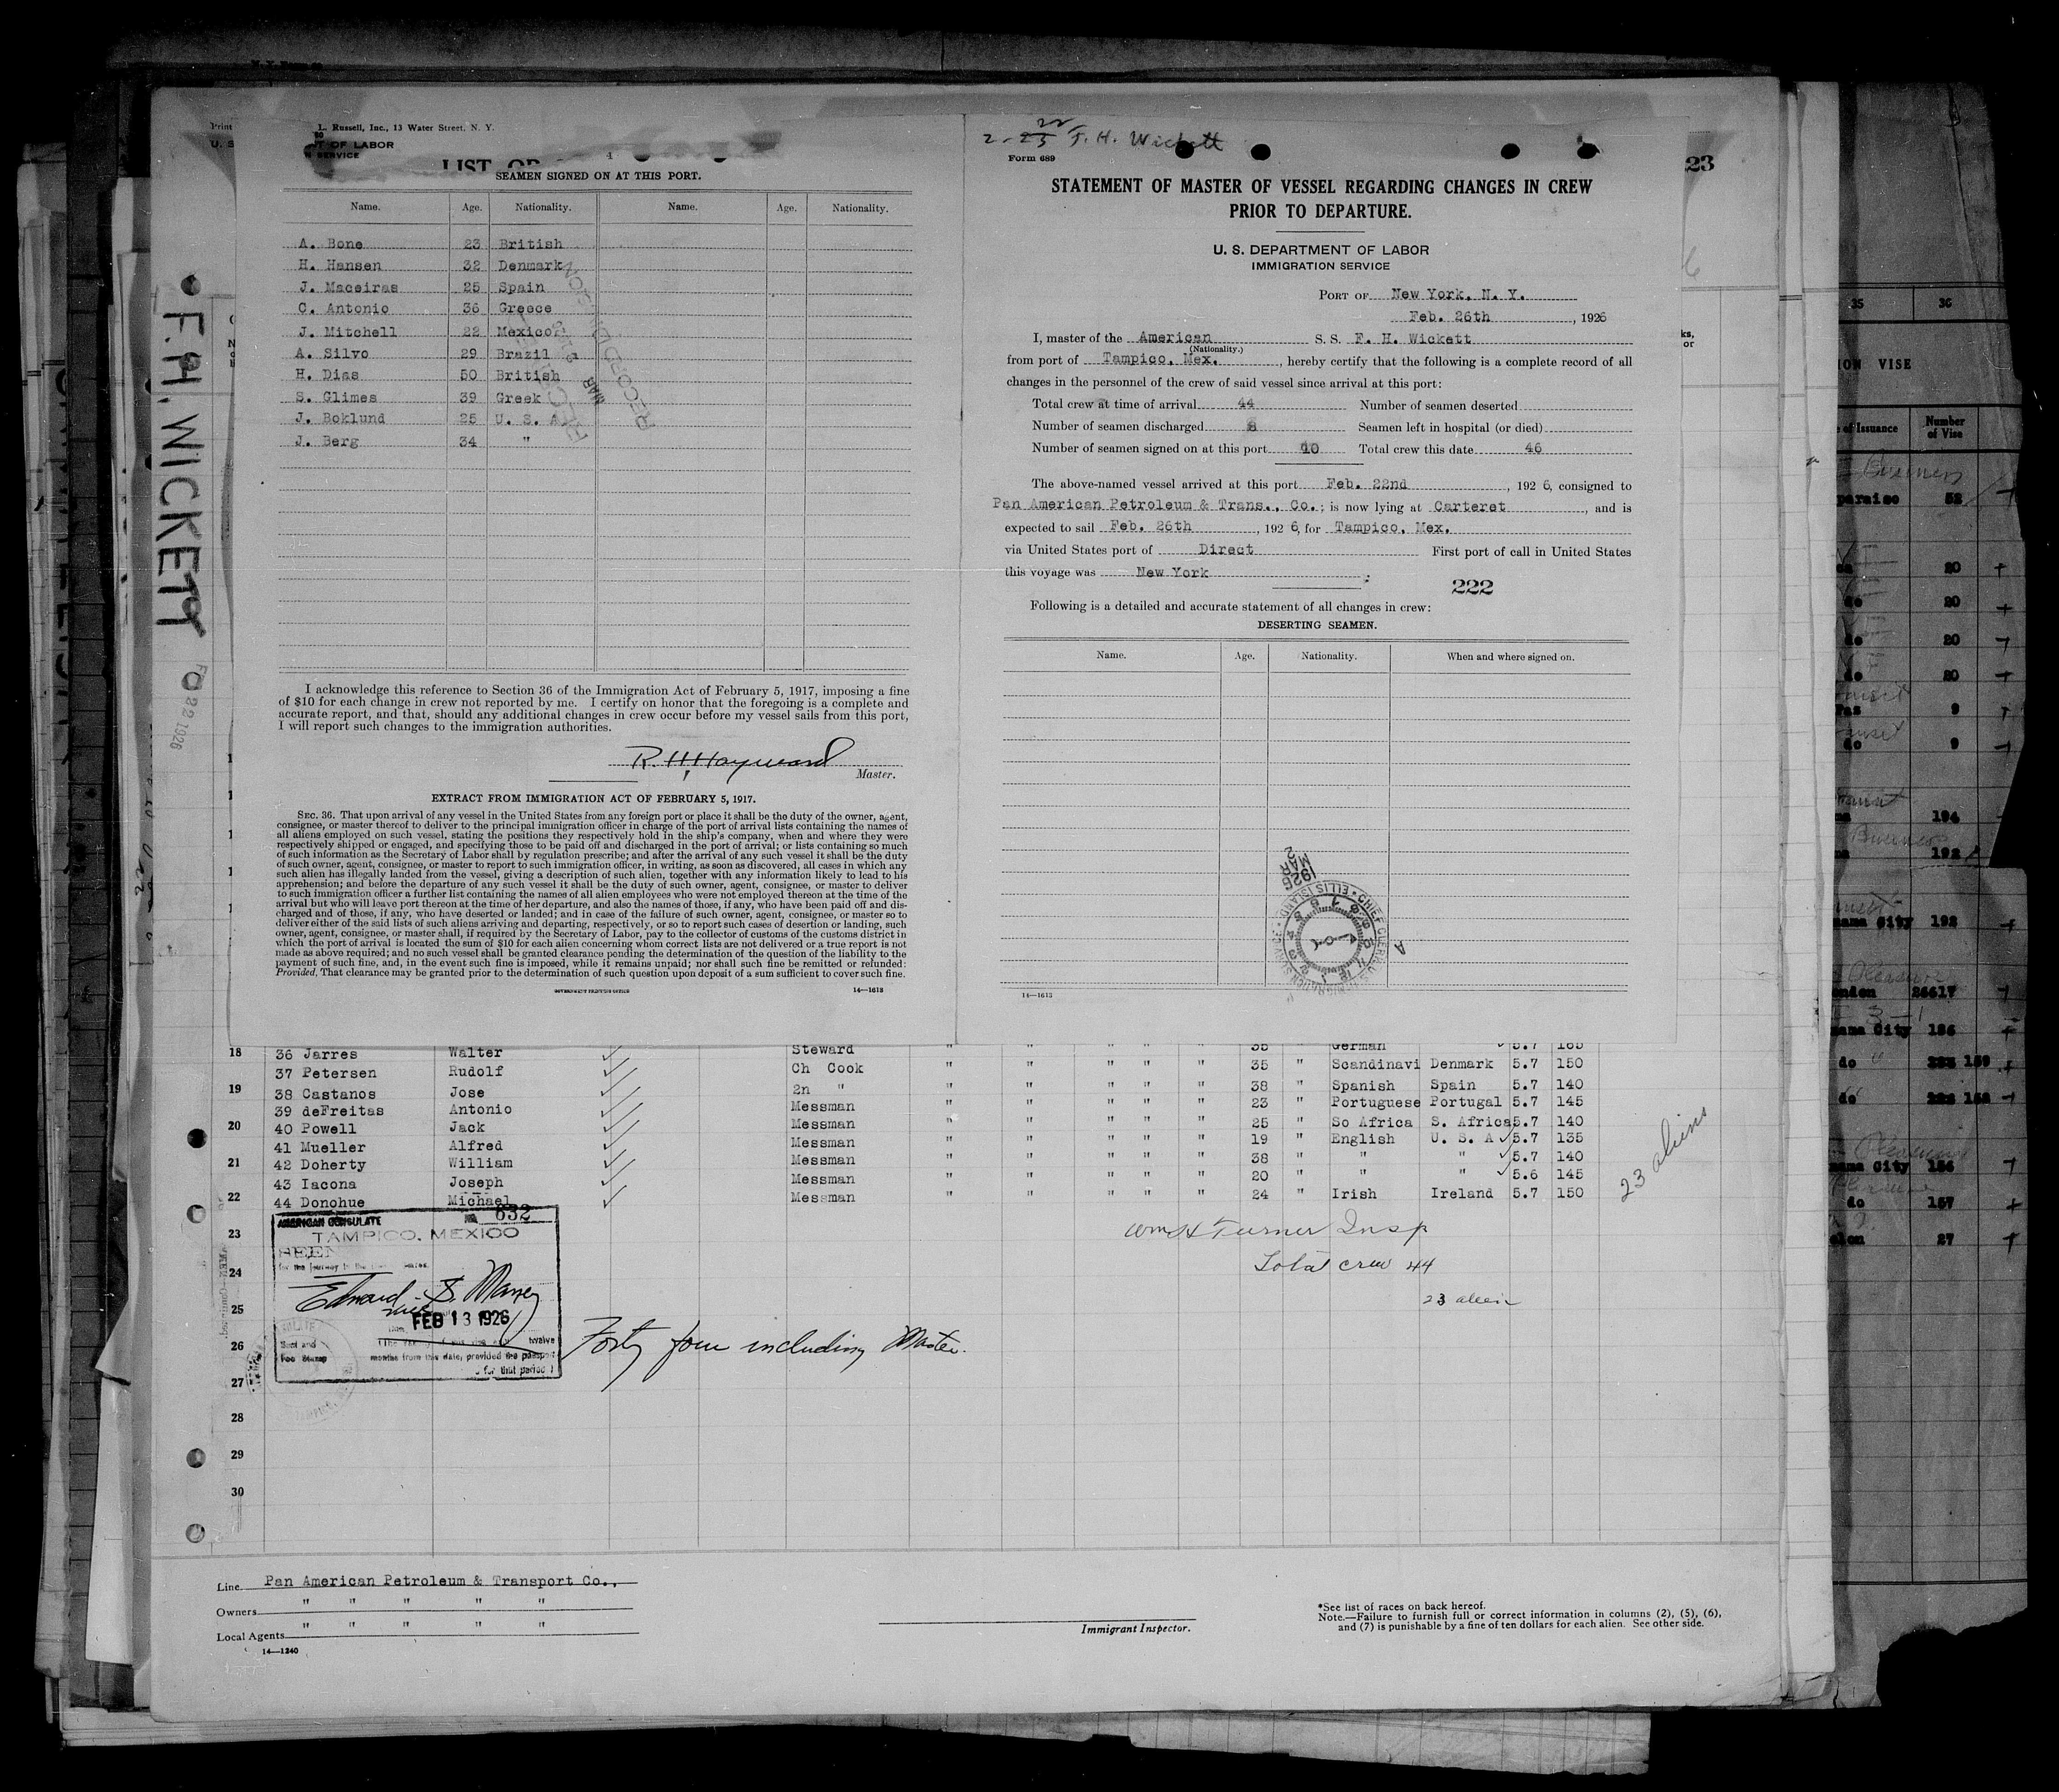 L. Russell, Inc., 13 Water Street, N. Y.
U. S
T OF LABOR
SERVICE
LIST OF
SEAMEN SIGNED ON AT THIS PORT.
Name. Age. Nationality. Name. Age. Nationality.
A. Bone 23 British
H. Hansen 32 Denmark
J. Maceiras 25 Spain
C. Antonio 36 Greece
J. Mitchell 22 Mexico
A. Silvo 29 Brazil
H. Dias 50 British
S. Glimes 39 Greek
J. Boklund 25 U. S. A.
J. Berg 34 "
RECORD DIVISION
MAR
I acknowledge this reference to Section 36 of the Immigration Act of February 5, 1917, imposing a fine
of $10 for each change in crew not reported by me. I certify on honor that the foregoing is a complete and
accurate report, and that, should any additional changes in crew occur before my vessel sails from this port,
I will report such changes to the immigration authorities.
R. H. Hayward
Master.
EXTRACT FROM IMMIGRATION ACT OF FEBRUARY 5, 1917.
SEC. 36. That upon arrival of any vessel in the United States from any foreign port or place it shall be the duty of the owner, agent,
consignee, or master thereof to deliver to the principal immigration officer in charge of the port of arrival lists containing the names of
all aliens employed on such vessel, stating the positions they respectively hold in the ship's company, when and where they were
respectively shipped or engaged, and specifying those to be paid off and discharged in the port of arrival; or lists containing so much
of such information as the Secretary of Labor shall by regulation prescribe; and after the arrival of any such vessel it shall be the duty
of such owner, agent, consignee, or master to report to such immigration officer, in writing, as soon as discovered, all cases in which any
such alien has illegally landed from the vessel, giving a description of such alien, together with any information likely to lead to his
apprehension; and before the departure of any such vessel it shall be the duty of such owner, agent, consignee, or master to deliver
to such immigration officer a further list containing the names of all alien employees who were not employed thereon at the time of the
arrival but who will leave port thereon at the time of her departure, and also the names of those, if any, who have been paid off and dis-
charged and of those, if any, who have deserted or landed; and in case of the failure of such owner, agent, consignee, or master so to
deliver either of the said lists of such aliens arriving and departing, respectively, or so to report such cases of desertion or landing, such
owner, agent, consignee, or master shall, if required by the Secretary of Labor, pay to the collector of customs of the customs district in
which the port of arrival is located the sum of $10 for each alien concerning whom correct lists are not delivered or a true report is not
made as above required; and no such vessel shall be granted clearance pending the determination of the question of the liability to the
payment of such fine, and, in the event such fine is imposed, while it remains unpaid; nor shall such fine be remitted or refunded:
Provided, That clearance may be granted prior to the determination of such question upon deposit of a sum sufficient to cover such fine.
GOVERNMENT PRINTING OFFICE 14—1613
22
2-25 F. H. Wickett
Form 689
23
STATEMENT OF MASTER OF VESSEL REGARDING CHANGES IN CREW
PRIOR TO DEPARTURE.
U. S. DEPARTMENT OF LABOR
IMMIGRATION SERVICE
PORT OF New York, N. Y.
Feb. 26th, 1926
I, master of the American S. S. F. H. Wickett
(Nationality.)
from port of Tampico, Mex., hereby certify that the following is a complete record of all
changes in the personnel of the crew of said vessel since arrival at this port:
Total crew at time of arrival 44 Number of seamen deserted
Number of seamen discharged 8 Seamen left in hospital (or died)
Number of seamen signed on at this port 10 Total crew this date 46
The above-named vessel arrived at this port Feb. 22nd, 1926, consigned to
Pan American Petroleum & Trans., Co.; is now lying at Carteret, and is
expected to sail Feb. 26th, 1926, for Tampico, Mex.
via United States port of Direct First port of call in United States
this voyage was New York.
222
Following is a detailed and accurate statement of all changes in crew:
DESERTING SEAMEN.
Name. Age. Nationality. When and where signed on.
1926 MAR 2
CHIEF CLERK U.S. IMMIGRATION SERVICE ELLIS ISLAND
14—1613
F.H. WICKETT
FEB 22 1926
18 36 Jarres Walter Steward " " " " " 35 " German 5.7 165
37 Petersen Rudolf Ch Cook " " " " " 35 " Scandinavi Denmark 5.7 150
19 38 Castanos Jose 2n " " " " " " 38 " Spanish Spain 5.7 140
39 deFreitas Antonio Messman " " " " " 23 " Portuguese Portugal 5.7 145
20 40 Powell Jack Messman " " " " " 25 " So Africa S. Africa 5.7 140
41 Mueller Alfred Messman " " " " " 19 " English U. S. A 5.7 135
21 42 Doherty William Messman " " " " " 38 " " " 5.7 140
43 Iacona Joseph Messman " " " " " 20 " " " 5.6 145
22 44 Donohue Michael Messman " " " " " 24 " Irish Ireland 5.7 150
23 aliens
23
24
25
26
27
28
29
30
AMERICAN CONSULATE No 632
TAMPICO, MEXICO
SEEN
for the journey to the
Edward S. Maney
FEB 13 1926
twelve
months from this date, provided the passport
for that period
Seal and
Fee Stamp
Forty four including Master.
Wm H Turner Insp
Total crew 44
23 alien
Line Pan American Petroleum & Transport Co.,
Owners " " " " "
Local Agents " " " " "
14—1240
Immigrant Inspector.
*See list of races on back hereof.
Note.—Failure to furnish full or correct information in columns (2), (5), (6),
and (7) is punishable by a fine of ten dollars for each alien. See other side.
35 36
ION VISE
of Issuance Number of Vise
paraiso 52
20
do 20
do 20
do 20
Pas 9
do 9
194
192
ama City 192
London 26617
ama City 186
do
do
ama City 156
do 157
27